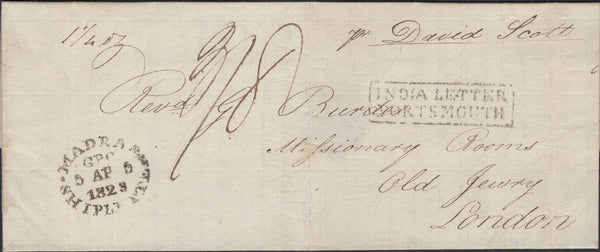 1¼ oz
pr David Scott
Revd G Burder
INDIA LETTER
PORTSMOUTH
Missionary Rooms
Old Jewry
London
MADRAS
GPO
5 AP 5
1823
SHIP